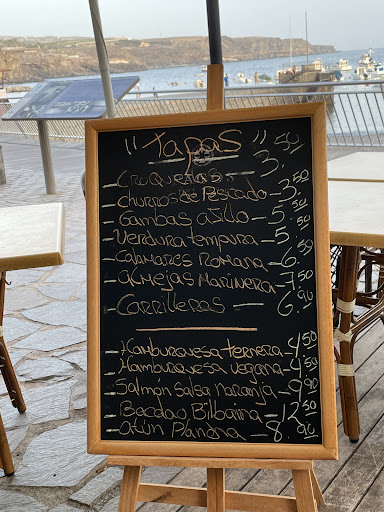 "Tapas"
Croquetas — 3.50
Churros de Pescado — 3.50
Gambas ajillo — 5.50
Verdura tempura — 5.50
Calamares Romana — 6.50
Almejas Marinera — 7.50
Carrilleras — 6.90
Hamburguesa ternera — 4.50
Hamburguesa vegana — 4.50
Salmón salsa naranja — 9.90
Bacalao Bilbaina — 12.50
Atún Plancha — 8.90